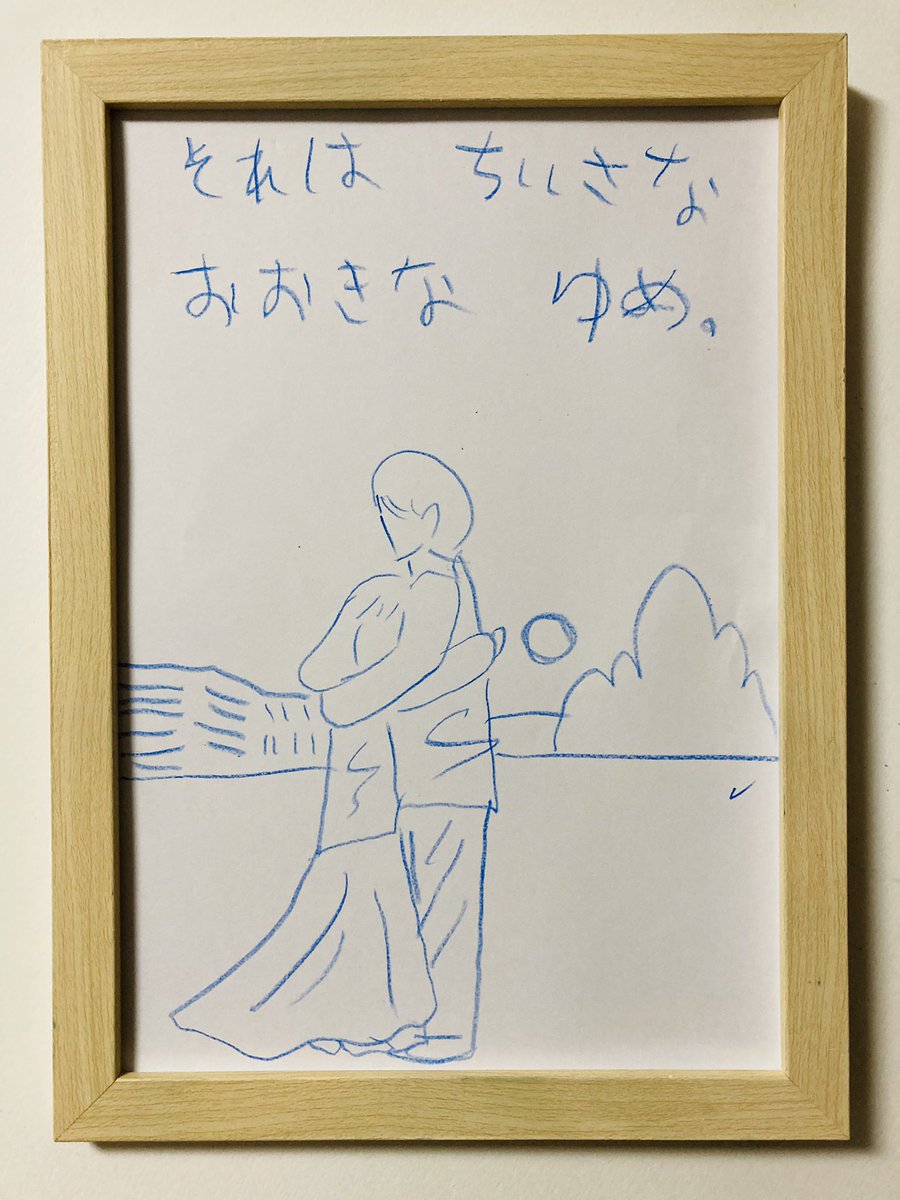 それは ちいさな
おおきな ゆめ。